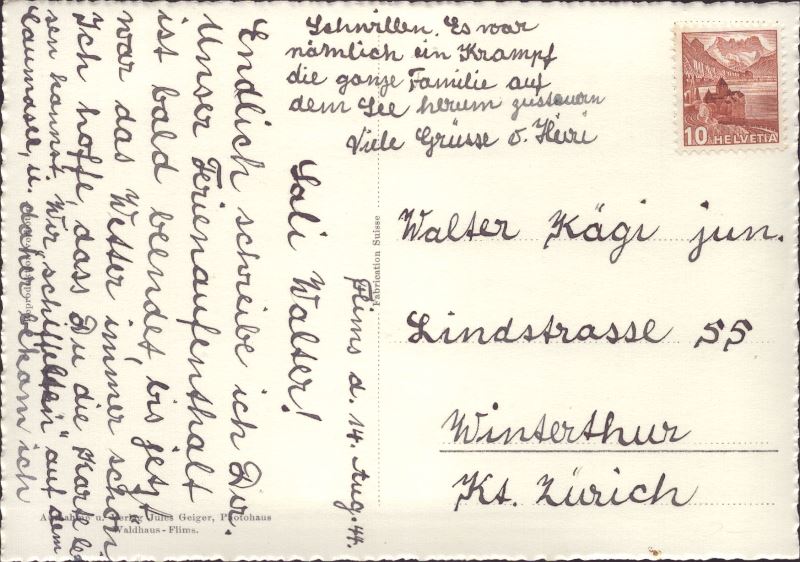 Flims d. 14. Aug. 44.
Sali Walter!
Endlich schreibe ich Dir.
Unser Ferienaufenthalt
ist bald beendet bis jetzt
war das Wetter immer schön.
Ich hoffe, dass Du die Kart le-
sen kannst. Wir „schiffelten" auf dem
Caumasee, u. daher bekam ich
Schwillen. Es war
nämlich ein Krampf
die ganze Familie auf
dem See herum zusteuern
Viele Grüsse v. Heiri
Walter Kägi jun.
Lindstrasse 55
Winterthur
Kt. Zürich
10 HELVETIA
Fabrication Suisse
Aufnahme u. Verlag Jules Geiger, Photohaus
Waldhaus - Flims.